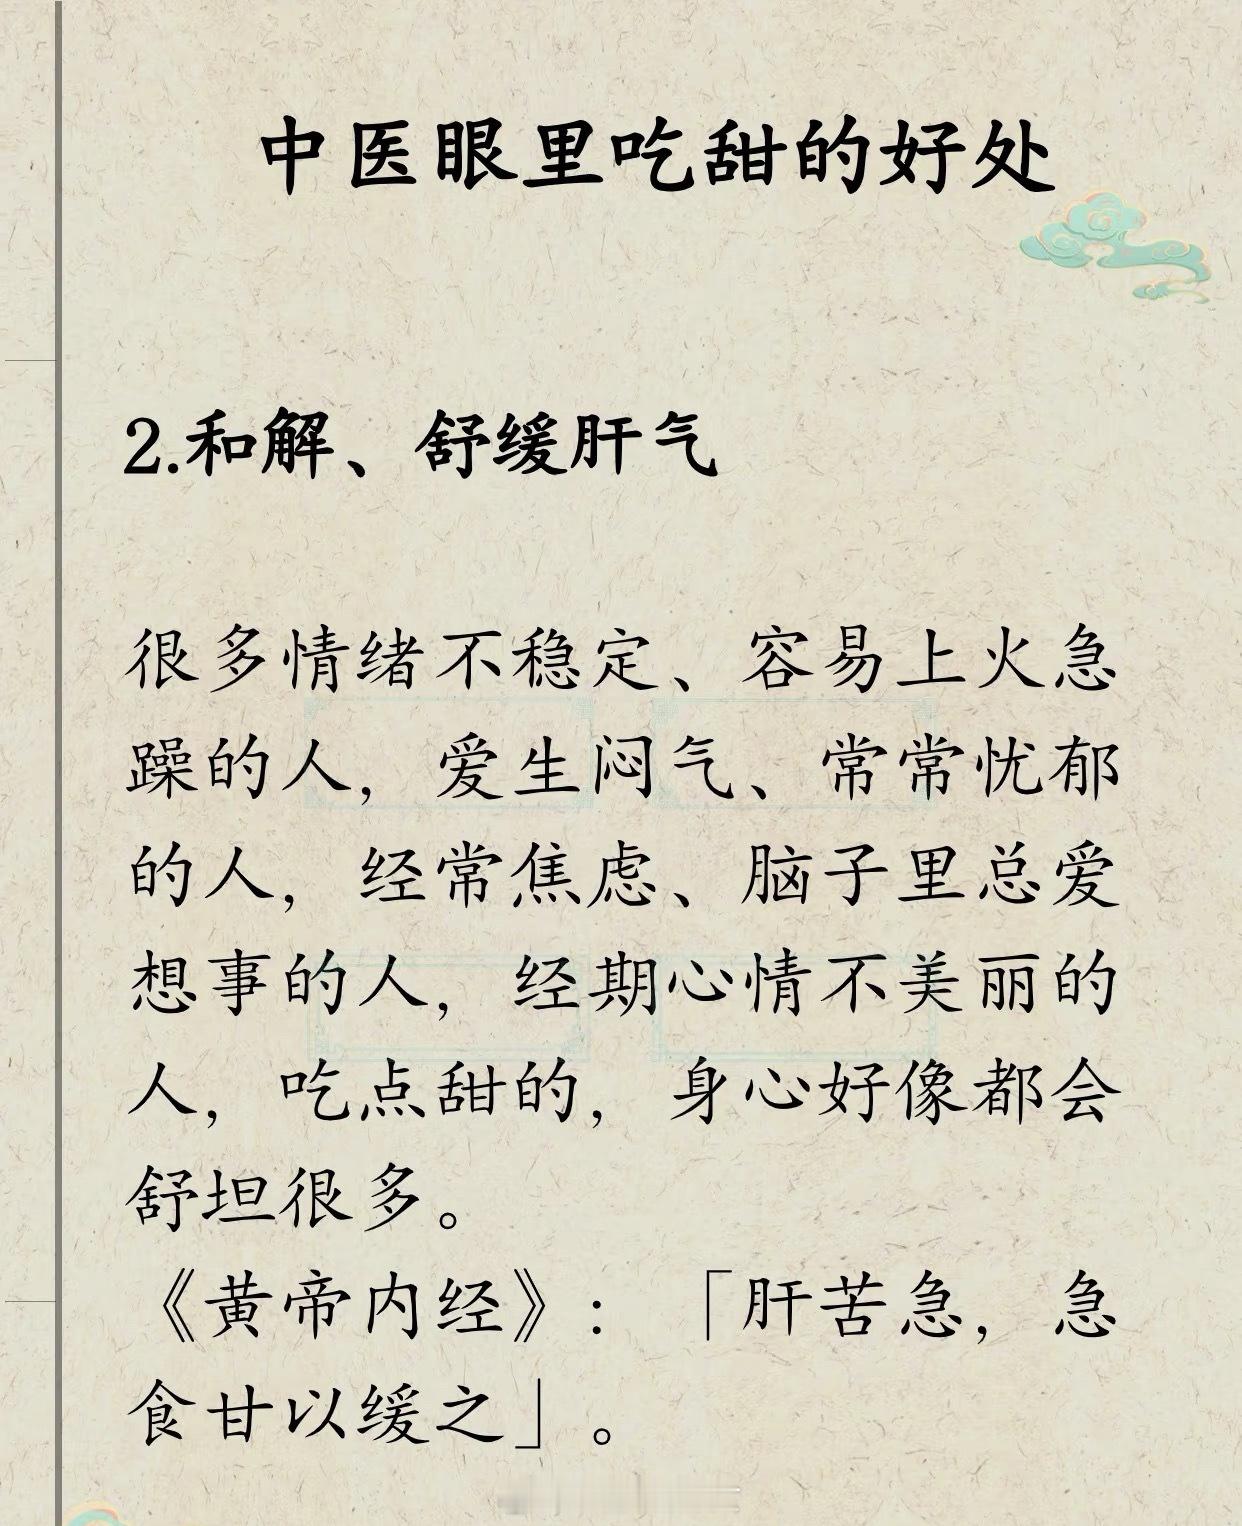 中医眼里吃甜的好处
2.和解、舒缓肝气
很多情绪不稳定、容易上火急
躁的人，爱生闷气、常常忧郁
的人，经常焦虑、脑子里总爱
想事的人，经期心情不美丽的
人，吃点甜的，身心好像都会
舒坦很多。
《黄帝内经》：「肝苦急，急
食甘以缓之」。